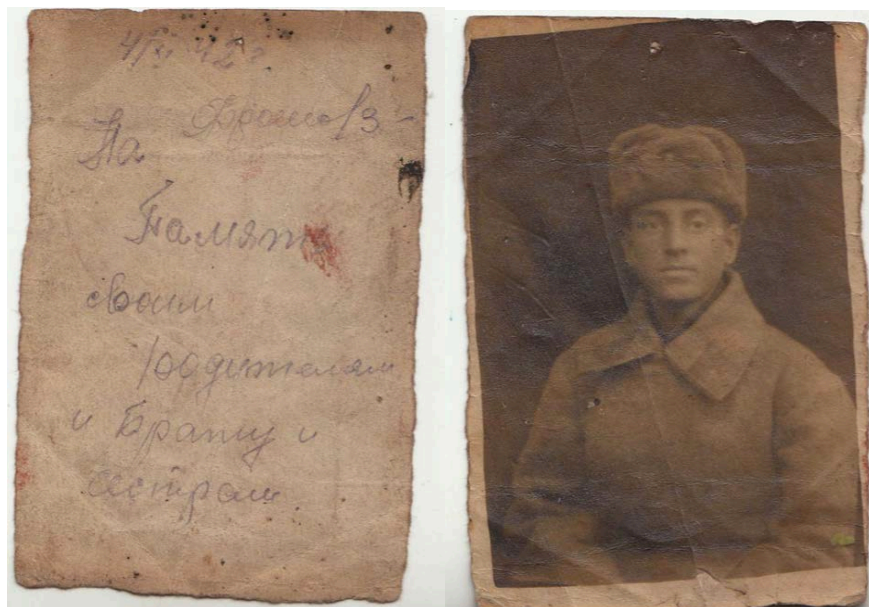 42 г
На
Память
своим
родителям
и Брату и
сестрам